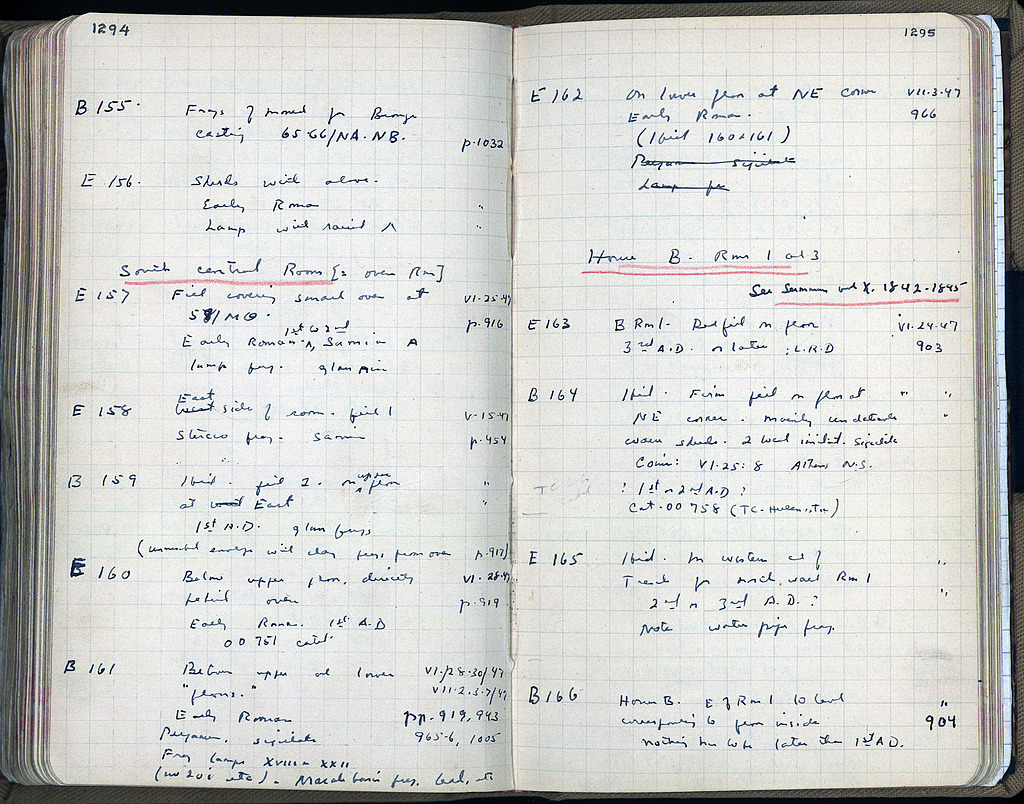 1294
B 155. Frags of mould for Bronze
casting 65-66/NA-NB. p.1032
E 156. Sherds with above.
Early Roman "
Lamp with raised "
South central Room [= oven Rm]
E 157 Fill covering small oven at VI-25-47
58/MO. p.916
Early Roman 1st to 2nd, Samian
lamp frag. glass
E 158 East side of room. fill 1 V-15-47
Stucco frag. Samian p.454
B 159 Ibid. fill 2. on upper floor "
at East "
1st A.D. glass frags
(unmarked envelope with clay frags from oven p.917)
E 160 Below upper floor, directly VI-28-47
behind oven p.919
Early Roman. 1st A.D
00 751 catal
B 161 Below upper and lower VI-28-30/47
"floors." VII-2-3-7/47
Early Roman pp. 919, 943
Pergamene sigillata 965-6, 1005
Frag lamps XVIII - XXII
1295
E 162 On lower floor at NE corner VII-3-47
Early Roman. 966
(Ibid 160+161)
Pergamene sigillata
Lamp fr
House B. Rms 1 and 3
See Summary vol X. 1842-1845
E 163 B Rm 1. Red fill on floor VI-24-47
3rd A.D. or later ; L.R.D 903
B 164 Ibid. Firm fill on floor at " "
NE corner. mainly undetermined "
coarse sherds. 2 local imitat. sigillata
Coin: VI-25: 8 Athens N.S.
? 1st or 2nd A.D ?
Cat. 00 758
E 165 Ibid. In western end of "
Trench for north wall Rm 1
2nd or 3rd A.D. ? "
Note water pipe frag.
B 166 House B. E of Rm 1 to level "
corresponding to floor inside 904
nothing here later than 1st AD.